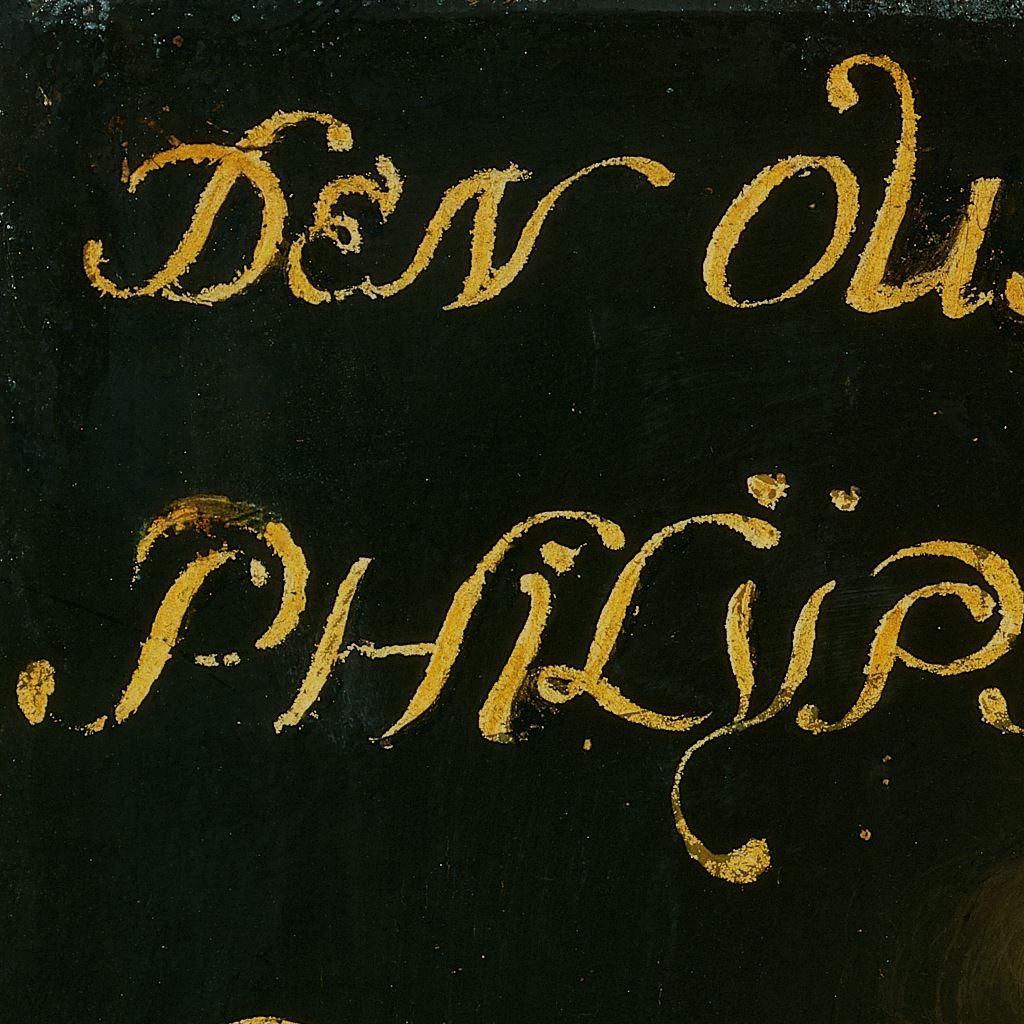 DEN OU
PHILYP